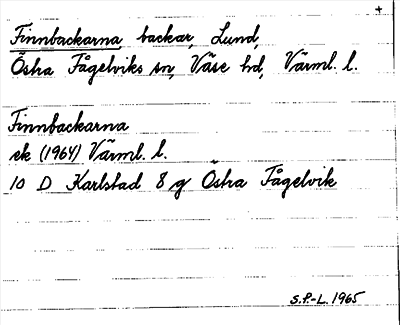 +
Finnbackarna backar, Lund,
Östra Fågelviks sn, Väse hd, Värml. l.
Finnbackarna
ek (1964) Värml. l.
10 D Karlstad 8 g Östra Fågelvik
S.P.-L. 1965